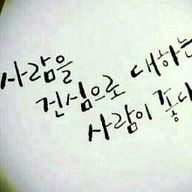 사람을
진심으로 대하는
사람이 좋다